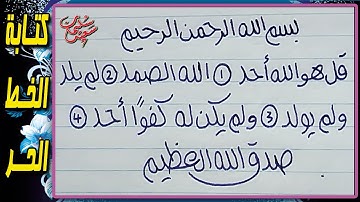 بسم الله الرحمن الرحيم
قل هو الله أحد ① الله الصمد ② لم يلد
ولم يولد ③ ولم يكن له كفوًا أحد ④
صدق الله العظيم
كتابة
الخط
الحر